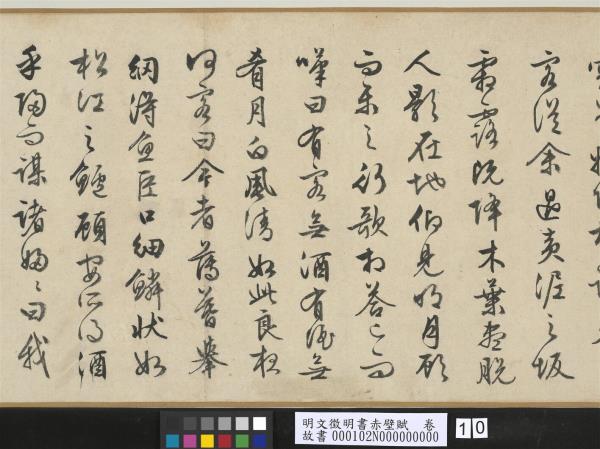 客從余過黃泥之坂
霜露既降木葉盡脫
人影在地仰見明月顧
而樂之行歌相答已而
嘆曰有客無酒有酒無
肴月白風清如此良夜
何客曰今者薄暮舉
網得魚巨口細鱗狀如
松江之鱸顧安所得酒
乎歸而謀諸婦〻曰我
明文徵明書赤壁賦 卷
故書 000102N000000000
10